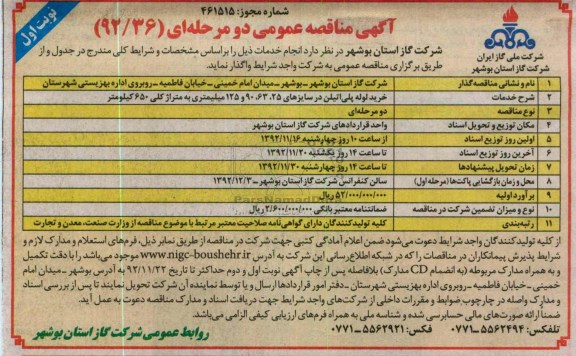 شماره مجوز: ۴۶۱۵۱۵
نوبت اول
آگهی مناقصه عمومی دو مرحله‌ای (۹۲/۳۶)
شرکت ملی گاز ایران
شرکت گاز استان بوشهر
شرکت گاز استان بوشهر در نظر دارد انجام خدمات ذیل را براساس مشخصات و شرایط کلی مندرج در جدول و از
طریق برگزاری مناقصه عمومی به شرکت واجد شرایط واگذار نماید.
۱ نام و نشانی مناقصه‌گذار شرکت گاز استان بوشهر ـ بوشهر ـ میدان امام خمینی ـ خیابان فاطمیه ـ روبروی اداره بهزیستی شهرستان
۲ شرح خدمات خرید لوله پلی‌اتیلن در سایزهای ۲۵، ۶۳، ۹۰ و ۱۲۵ میلیمتری به متراژ کلی ۶۵۰ کیلومتر
۳ نوع مناقصه دو مرحله‌ای
۴ مکان توزیع و تحویل اسناد واحد قراردادهای شرکت گاز استان بوشهر
۵ اولین روز توزیع اسناد از ساعت ۱۰ روز چهارشنبه ۱۳۹۲/۱۱/۱۶
۶ آخرین روز توزیع اسناد تا ساعت ۱۴ روز یکشنبه ۱۳۹۲/۱۱/۲۰
۷ زمان تحویل پیشنهادها تا ساعت ۱۴ روز چهارشنبه ۱۳۹۲/۱۱/۳۰
۸ محل و زمان بازگشایی پاکت‌ها (مرحله اول) سالن کنفرانس شرکت گاز استان بوشهر ـ ۱۳۹۲/۱۲/۳
۹ برآورد اولیه ۵۲/۰۰۰/۰۰۰/۰۰۰ ریال
۱۰ نوع و میزان تضمین شرکت در مناقصه ضمانتنامه معتبر بانکی ۲/۶۰۰/۰۰۰/۰۰۰ ریال
۱۱ رتبه‌بندی کلیه تولیدکنندگان دارای گواهی‌نامه صلاحیت معتبر مرتبط با موضوع مناقصه از وزارت صنعت، معدن و تجارت
از کلیه تولیدکنندگان واجد شرایط دعوت می‌شود ضمن اعلام آمادگی کتبی جهت شرکت در مناقصه از طریق نمابر ذیل، فرم‌های استعلام و مدارک لازم و
شرایط پذیرش پیمانکاران در مناقصات را که در شبکه اطلاع‌رسانی این شرکت به آدرس www.nigc-boushehr.ir موجود می‌باشد را با دقت تکمیل
و به همراه مدارک مربوطه (به انضمام CD مدارک) بلافاصله پس از چاپ آگهی نوبت اول و دوم حداکثر تا تاریخ ۹۲/۱۱/۲۲ به آدرس بوشهر ـ میدان امام
خمینی ـ خیابان فاطمیه ـ روبروی اداره بهزیستی شهرستان ـ دفتر امور قراردادها ارسال و یا توسط نماینده آن شرکت تحویل نمایند تا پس از بررسی اسناد
و مدارک واصله در چارچوب ضوابط و مقررات داخلی از شرکت‌های واجد شرایط جهت دریافت اسناد و مدارک مناقصه دعوت به عمل آید.
ضمناً ارائه صورت‌های مالی حسابرسی شده و شناسه ملی به همراه فرم‌های ارزیابی کیفی الزامی می‌باشد.
تلفکس: ۵۵۶۲۴۹۴-۰۷۷۱ فکس: ۵۵۶۲۹۲۱-۰۷۷۱
روابط عمومی شرکت گاز استان بوشهر